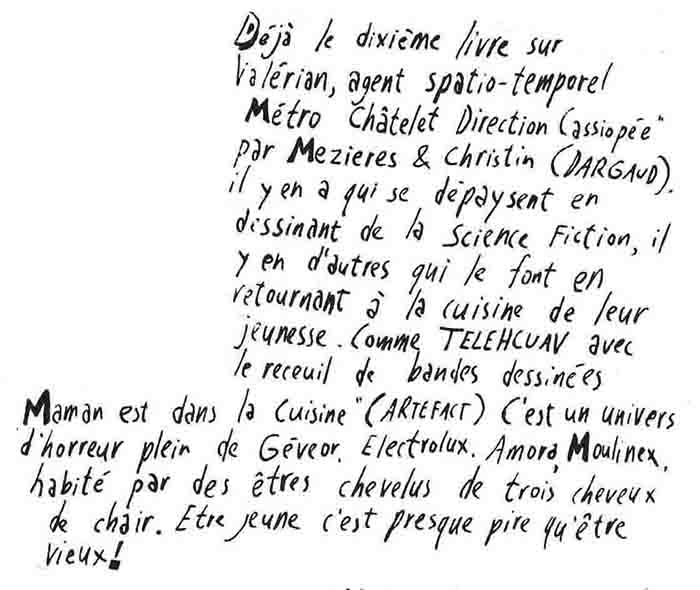 Déjà le dixième livre sur
Valérian, agent spatio-temporel
Métro Châtelet Direction Cassiopée"
par Mezieres & Christin (DARGAUD).
il y en a qui se dépaysent en
dissinant de la Science Fiction, il
y en d'autres qui le font en
retournant à la cuisine de leur
jeunesse. Comme TELEHCUAV avec
le receuil de bandes dessinées
Maman est dans la Cuisine" (ARTEFACT) C'est un univers
d'horreur plein de Géveor. Electrolux. Amora, Moulinex,
habité par des êtres chevelus de trois cheveux
de chair. Etre jeune c'est presque pire qu'être
vieux!